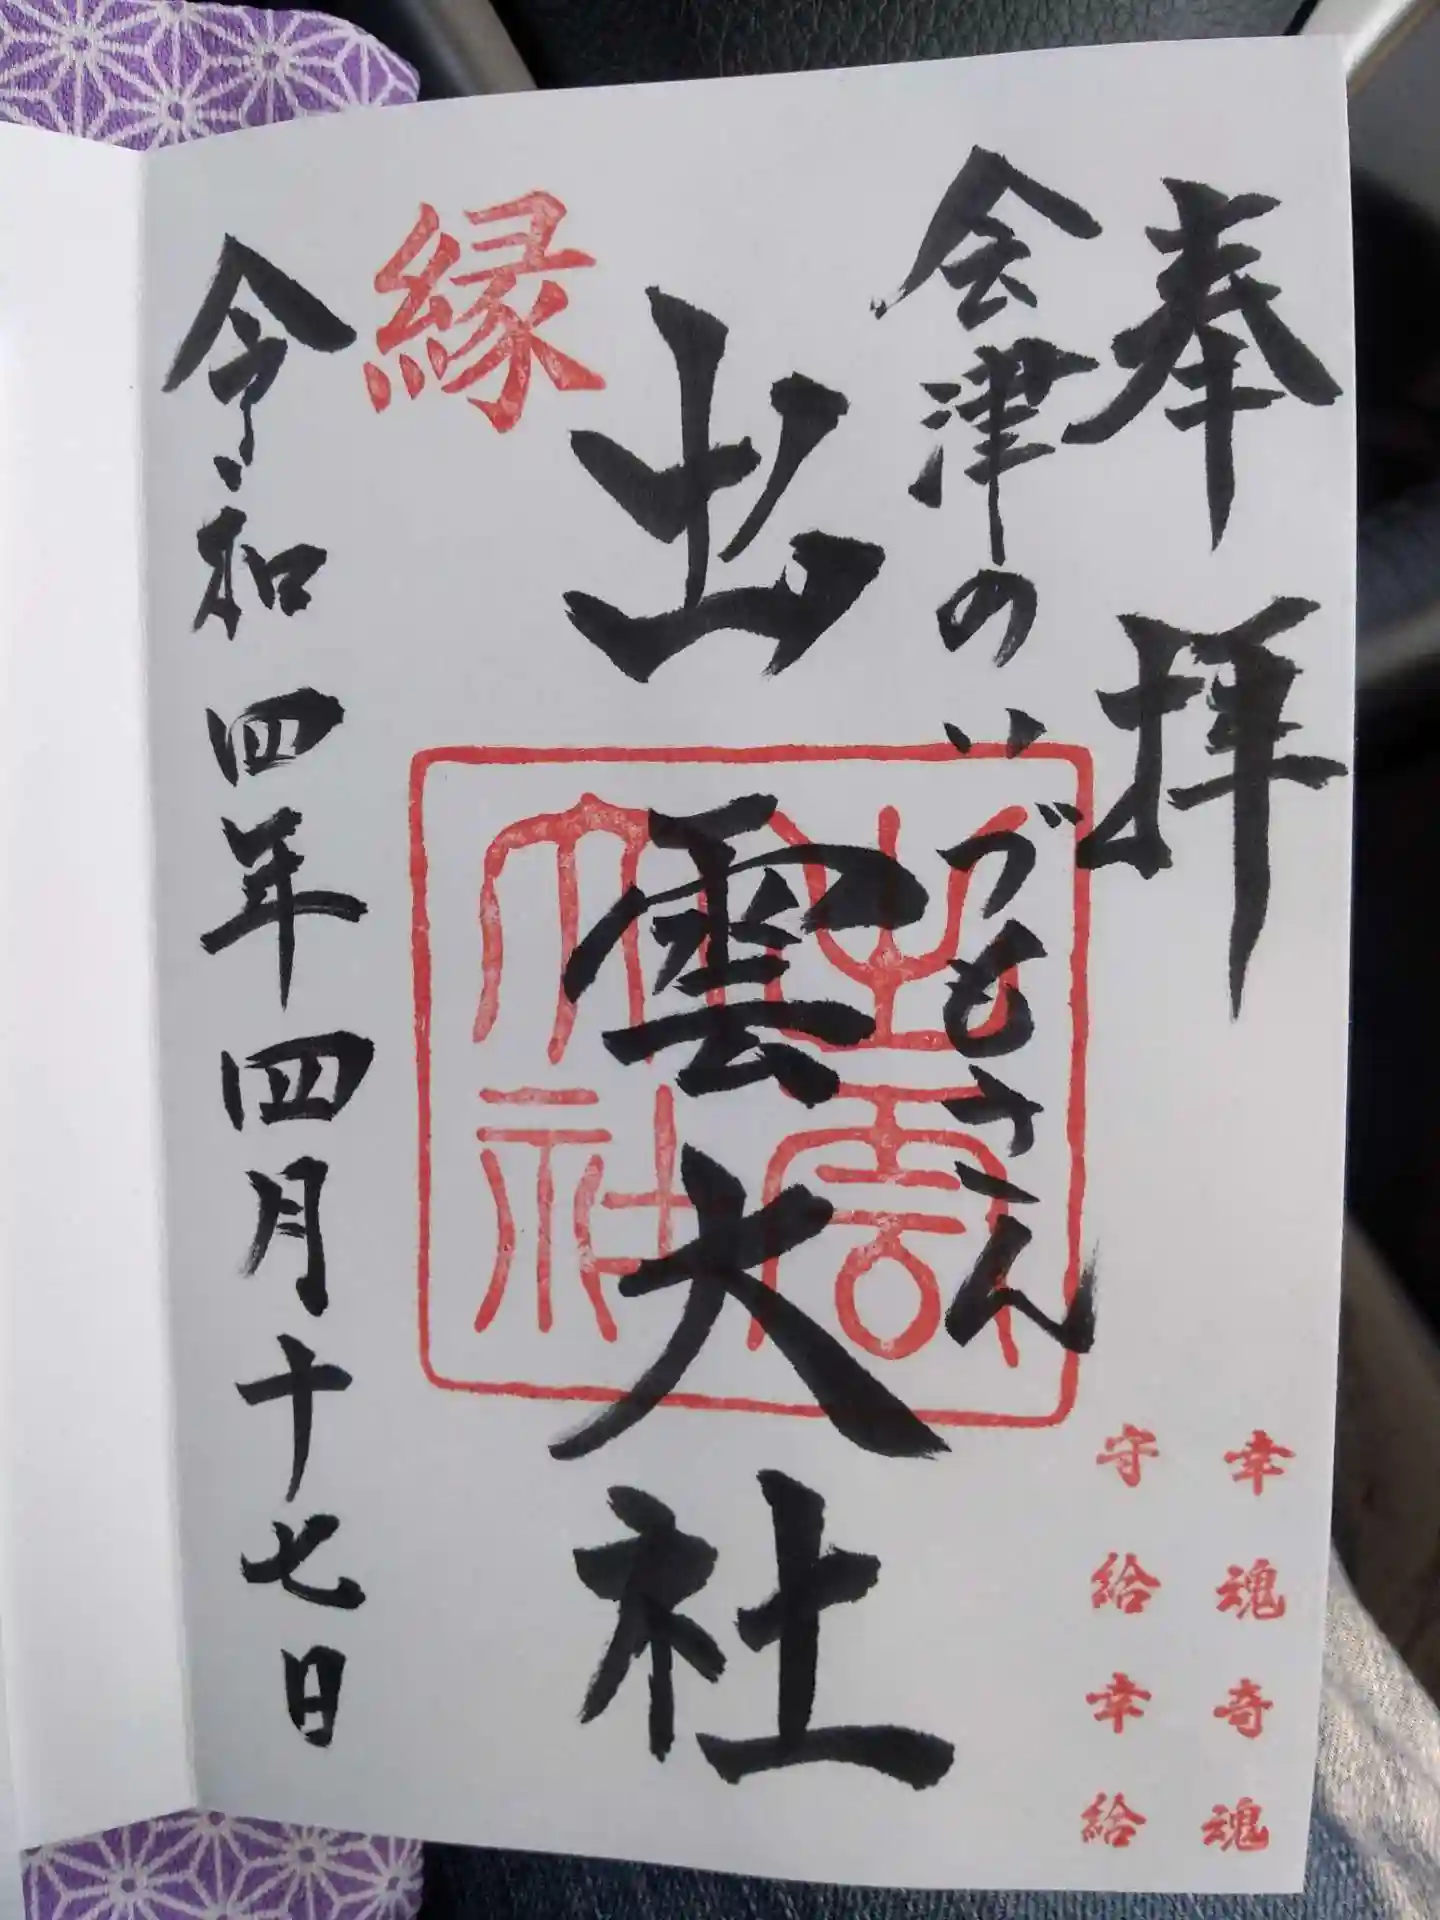 奉拝
会津のいづもさん
出雲大社
出雲大社
縁
令和四年四月十七日
幸魂奇魂
守給幸給